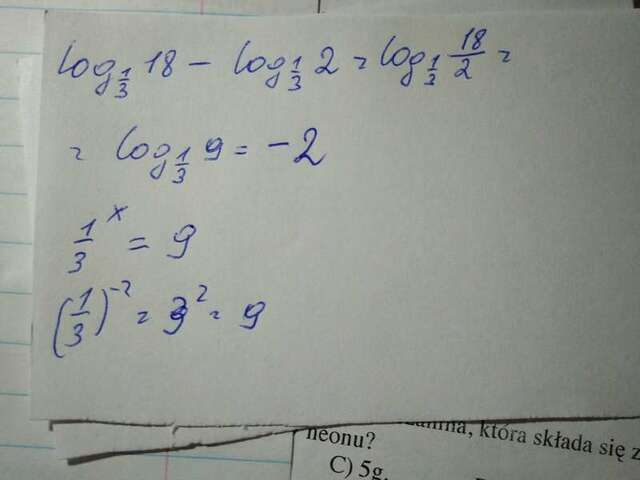 log_{1/3} 18 - log_{1/3} 2 = log_{1/3} 18/2 =
= log_{1/3} 9 = -2
1/3^x = 9
(1/3)^{-2} = 3^2 = 9
która składa się z
neonu?
C) 5g.